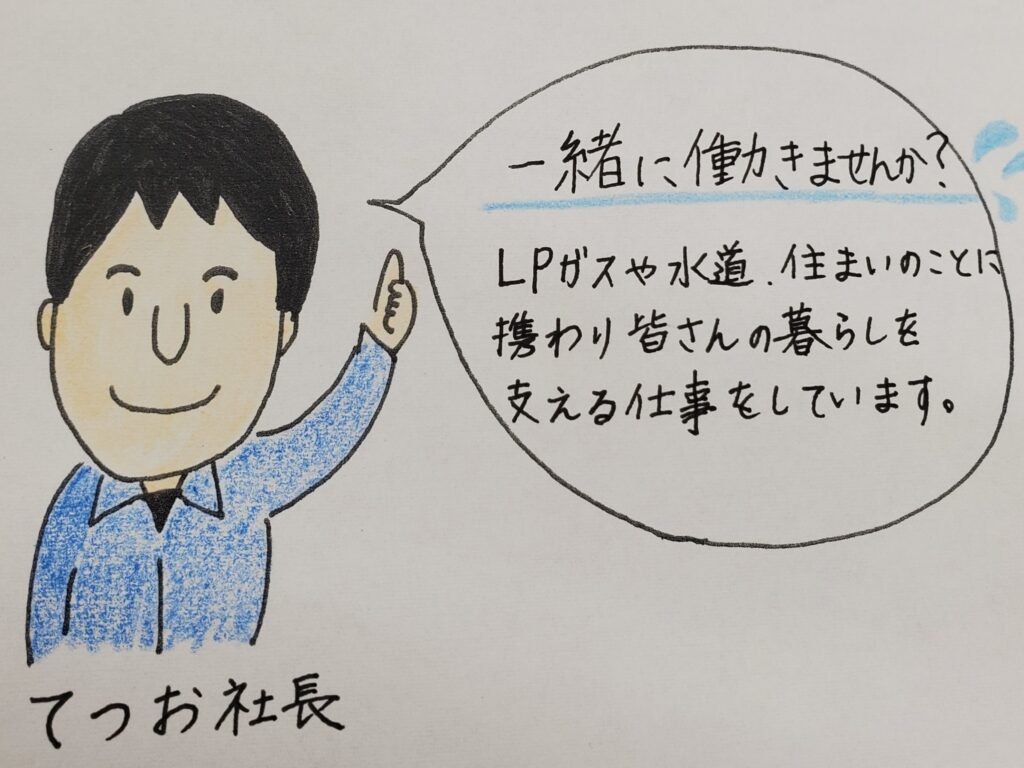 一緒に働きませんか?
LPガスや水道、住まいのことに
携わり皆さんの暮らしを
支える仕事をしています。
てつお社長